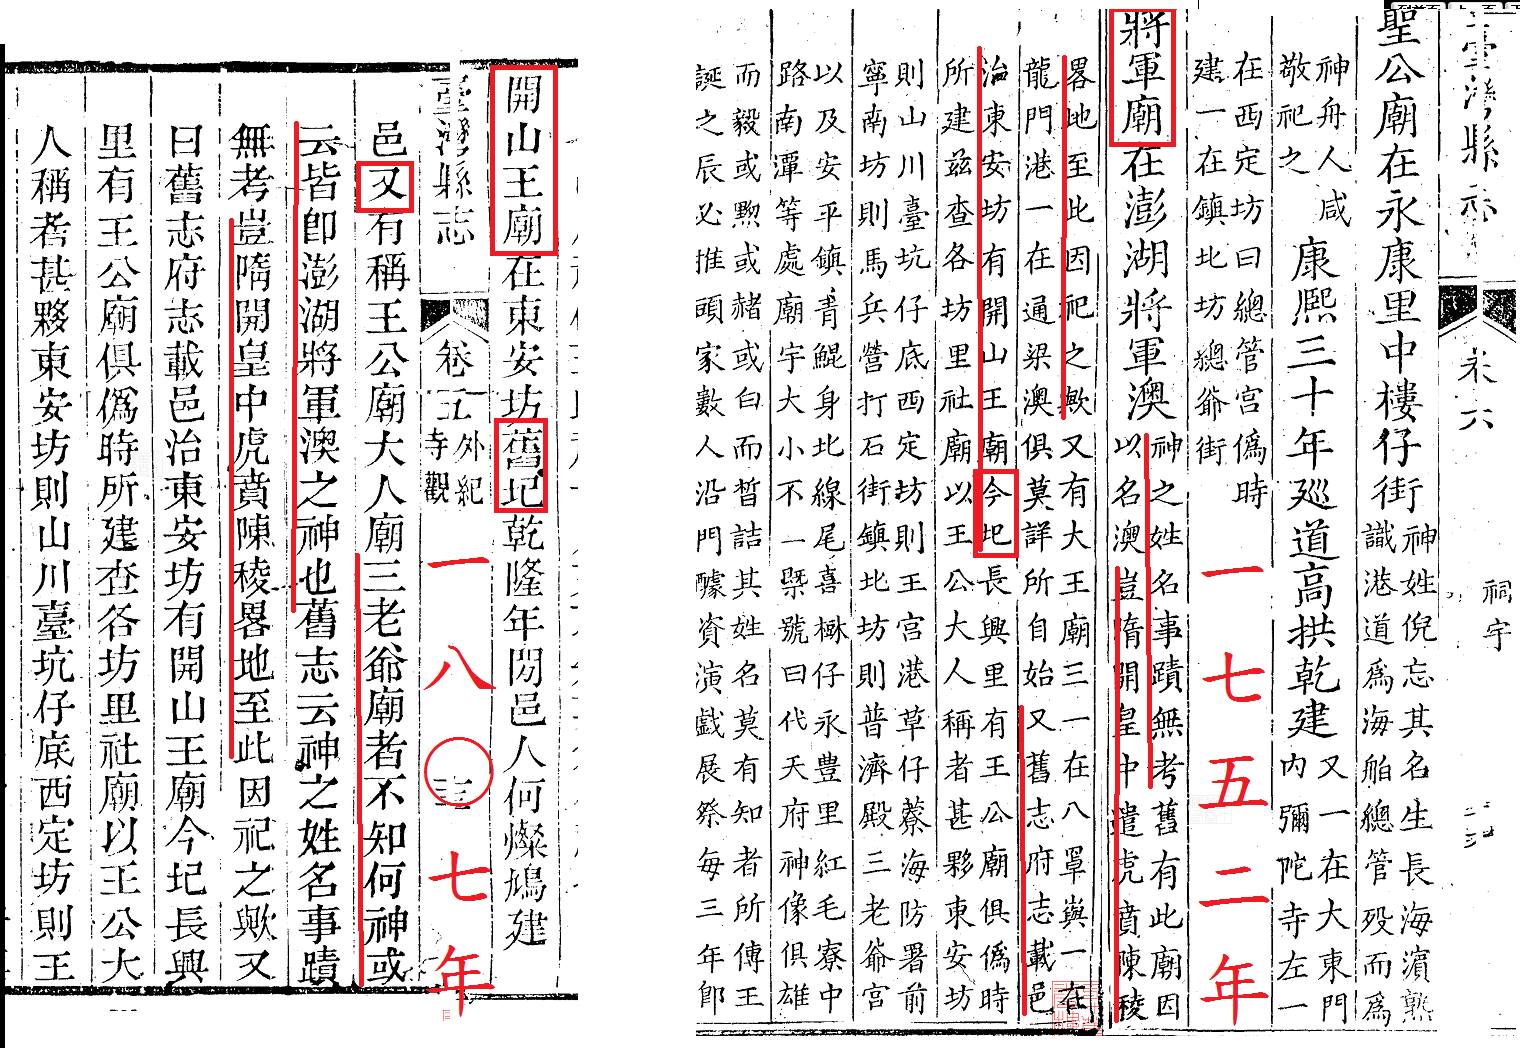 臺灣縣志 卷六 祠宇
聖公廟在永康里中樓仔街
神姓倪忘其名生長海濵熟
識港道為海舶總管殁而為
神舟人咸
敬祀之
康熙三十年廵道高拱乾建
又一在大東門
內彌陀寺左一
在西定坊曰總管宮偽時
建一在鎮北坊總爺街
一七五二年
將軍廟在澎湖將軍澳
神之姓名事蹟無考舊有此廟因
以名澳豈隋開皇中遣虎賁陳稜
畧地至此因祀之歟又有大王廟三一在八罩嶼一在
龍門港一在通梁澳俱莫詳所自始又舊志府志載邑
治東安坊有開山王廟今圯長興里有王公廟俱偽時
所建兹查各坊里社廟以王公大人稱者甚夥東安坊
則山川臺坑仔底西定坊則王宮港草仔蔡海防署前
寧南坊則馬兵營打石街鎮北坊則普濟殿三老爺宮
以及安平鎮青鯤身北線尾喜樹仔永豐里紅毛寮中
路南潭等處廟宇大小不一槩號曰代天府神像俱雄
而毅或黝或赭或白而皙詰其姓名莫有知者所傳王
誕之辰必推頭家數人沿門醵資演戲展祭每三年卽
開山王廟在東安坊舊圯乾隆年間邑人何燦鳩建
臺灣縣志 卷五 外紀 寺觀
一八〇七年
邑又有稱王公廟大人廟三老爺廟者不知何神或
云皆卽澎湖將軍澳之神也舊志云神之姓名事蹟
無考豈隋開皇中虎賁陳稜畧地至此因祀之歟又
曰舊志府志載邑治東安坊有開山王廟今圯長興
里有王公廟俱偽時所建查各坊里社廟以王公大
人稱者甚夥東安坊則山川臺坑仔底西定坊則王